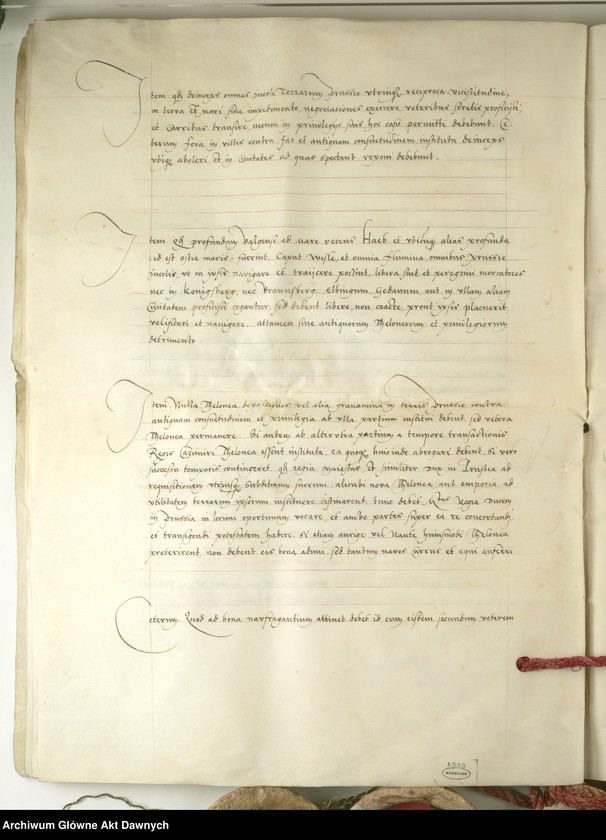 Item qd deinceps omnes incole Terrarum Prussie utrinque reciproca vicissitudine,
in terra et mari sine impedimento negociaciones exercere veteribus stratis proficisci
et Curribus transire, necnon in privilegiis suis hoc casu permitti debebunt. Ce-
terum fora in villis contra fas et antiquam consuetudinem instituta deinceps
ubique aboleri et in Civitates ad quas spectant reponi debebunt.
Item Qd profundum Balgense ad mare recens Haeb et ubicunque alias profunda
id est ostia maris fuerint, Caput Wisle, et omnia flumina omnibus Prussie
incolis, ut in ipsis navigare et traijcere possint, libera sint, et peregrini mercatores
nec in Konigsberg nec Braunsberg Elbingum Gedanum aut in ullam aliam
Civitatem proficisci cogantur, sed debent libere, non coacte, prout ipsis placuerit
velificari et navigare, attamen sine antiquorum Theloneorum et privilegiorum
detrimento.
Item Nulla Thelonea depositiones vel alia gravamina in terris Prussie contra
antiquam consuetudinem et privilegia ab ulla partium institui debent, sed vetera
Thelonea permanere. Si autem ab alterutra partium a tempore transactionis
Regis Cazimiri Thelonea essent instituta, ea quoque hincinde abrogari debent, si vero
successu temporis contingeret qd regia maiestas et similiter dux in Prussia ad
requisitionem utriusque subditorum suorum alicubi nova Thelonea aut emporia ad
utilitatem terrarum ipsorum instituere existimarent, tunc debet Mtas Regia Ducem
in Prussia in locum oportunum vocare, et ambe partes super ea re concordandi
et transigendi potestatem habere, si etiam aurige vel Naute huiusmodi Thelonea
preterirent non debent eis bona adimi, sed tantum naves Currus et equi auferri
Ceterum Quod ad bona naufragantium attinet debet id cum eisdem secundum veterem
AGAD
WARSZAWA
Archiwum Główne Akt Dawnych